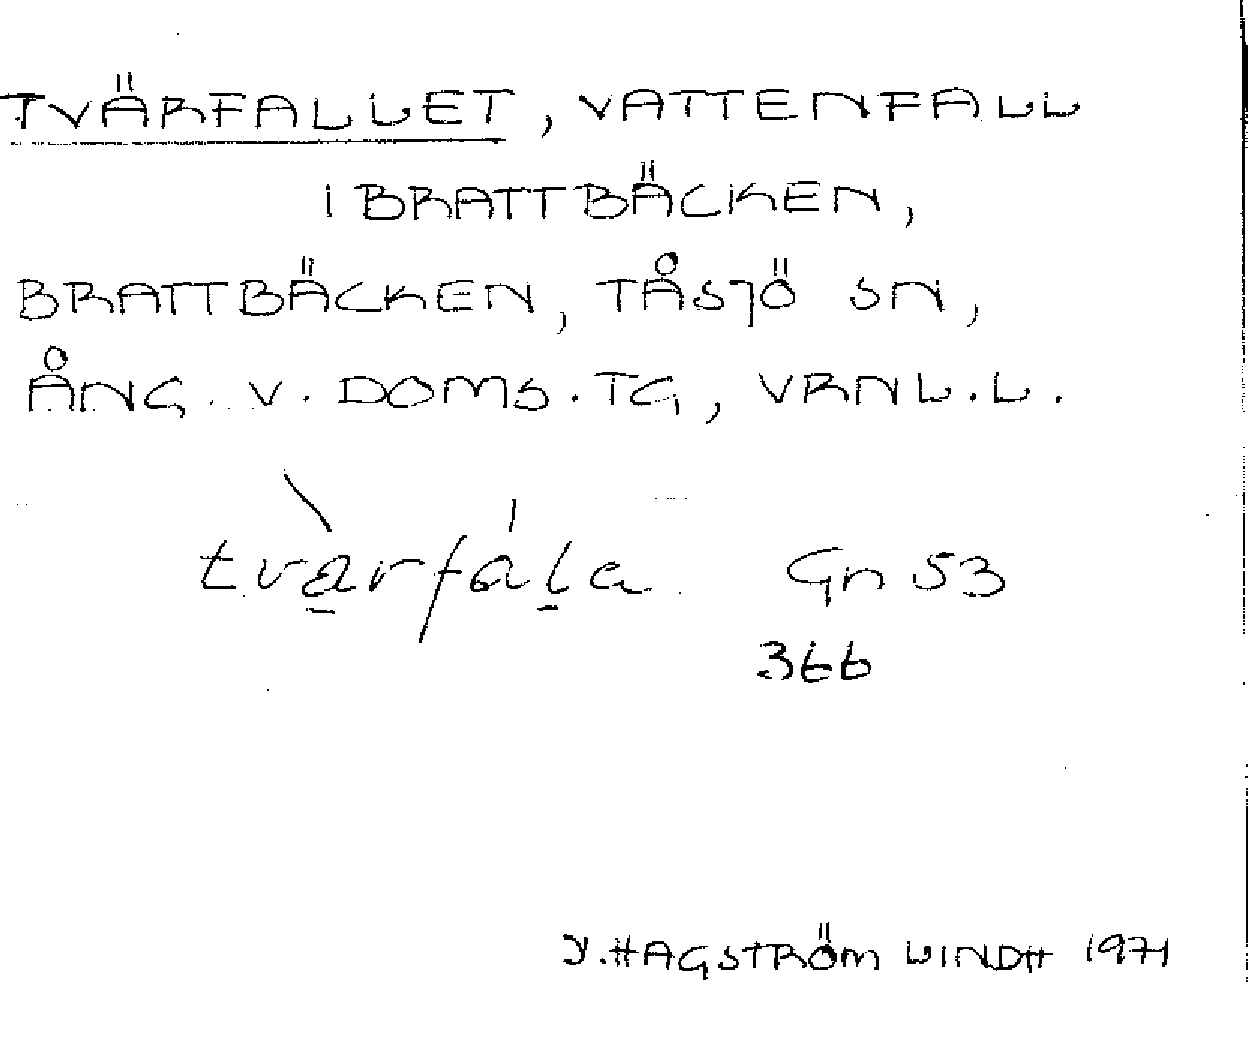 TVÄRFALLET, VATTENFALL
I BRATTBÄCKEN,
BRATTBÄCKEN, TÅSJÖ SN,
ÅNG. V. DOMS. TG, VRNL. L.
tvärfala Gn 53
366
Y. HAGSTRÖM LINDH 1971